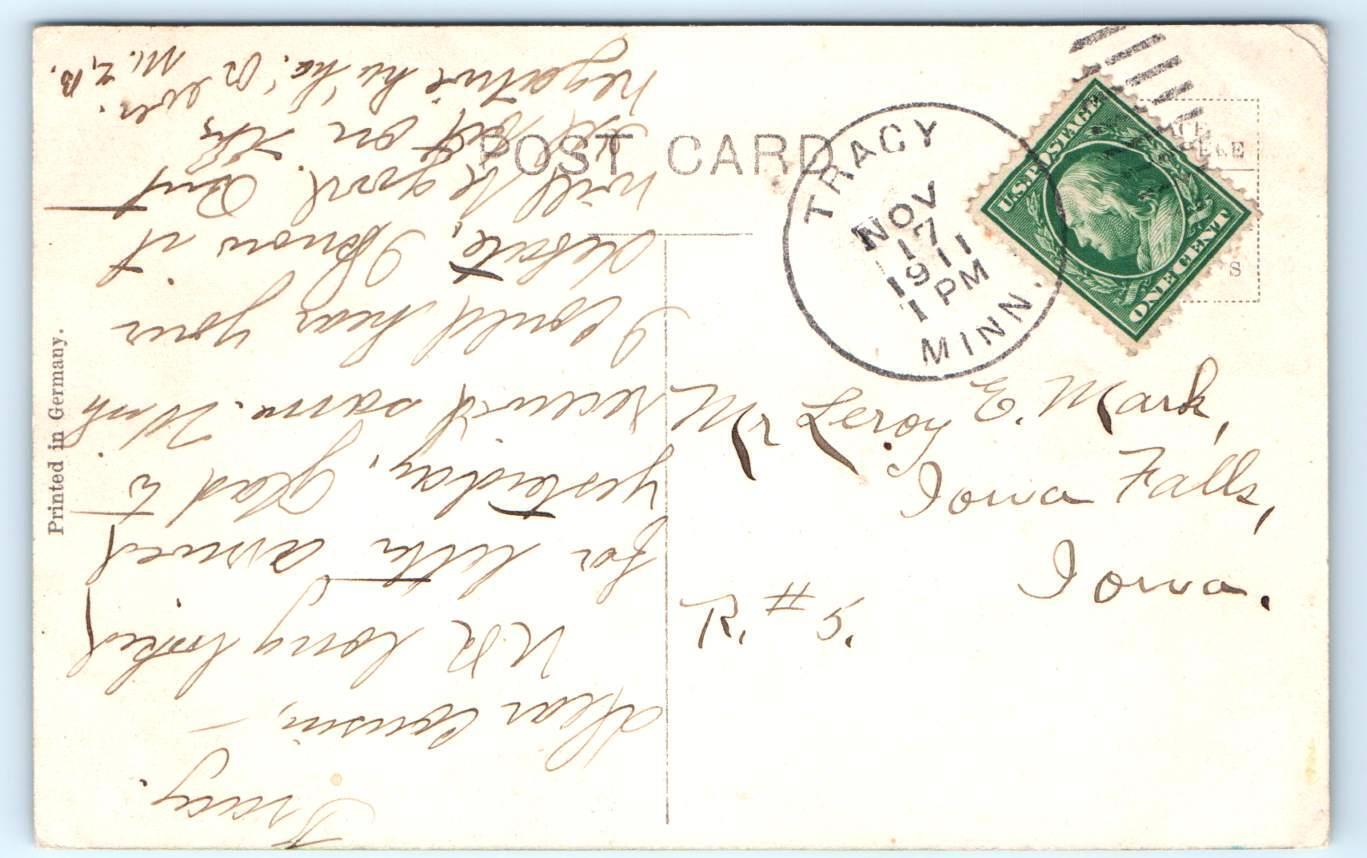 POST CARD
TRACY
NOV
17
1911
1 PM
MINN.
U.S. POSTAGE
ONE CENT
Printed in Germany.
Mr Leroy E. Mark,
Iowa Falls,
Iowa.
R. #5.
Tracy.
Dear Cousin,—
long looked
for letter arrived
yesterday. Glad to
received same. Wish
I could hear your
debate, I know it
will be good. But
on the
negative ha ha. as ever.
M. Z. B.